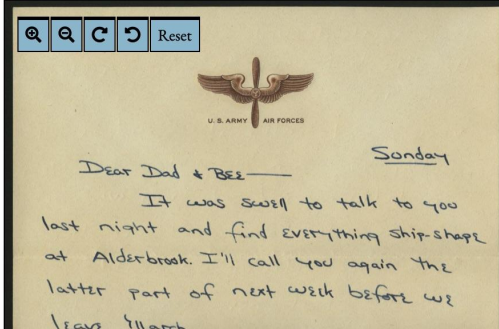 Reset
U. S. ARMY AIR FORCES
Sunday
Dear Dad & Bee—
It was swell to talk to you
last night and find everything ship-shape
at Alderbrook. I'll call you again the
latter part of next week before we
leave March